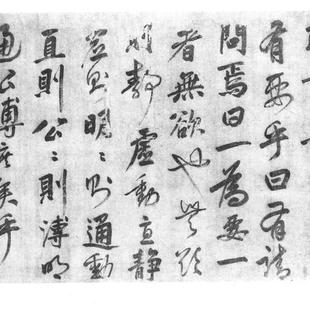 有要乎曰有請
問焉曰一為要一
者無欲也無欲
則靜虛動直靜
虛則明〻則通動
直則公〻則溥明
通公溥庶矣乎